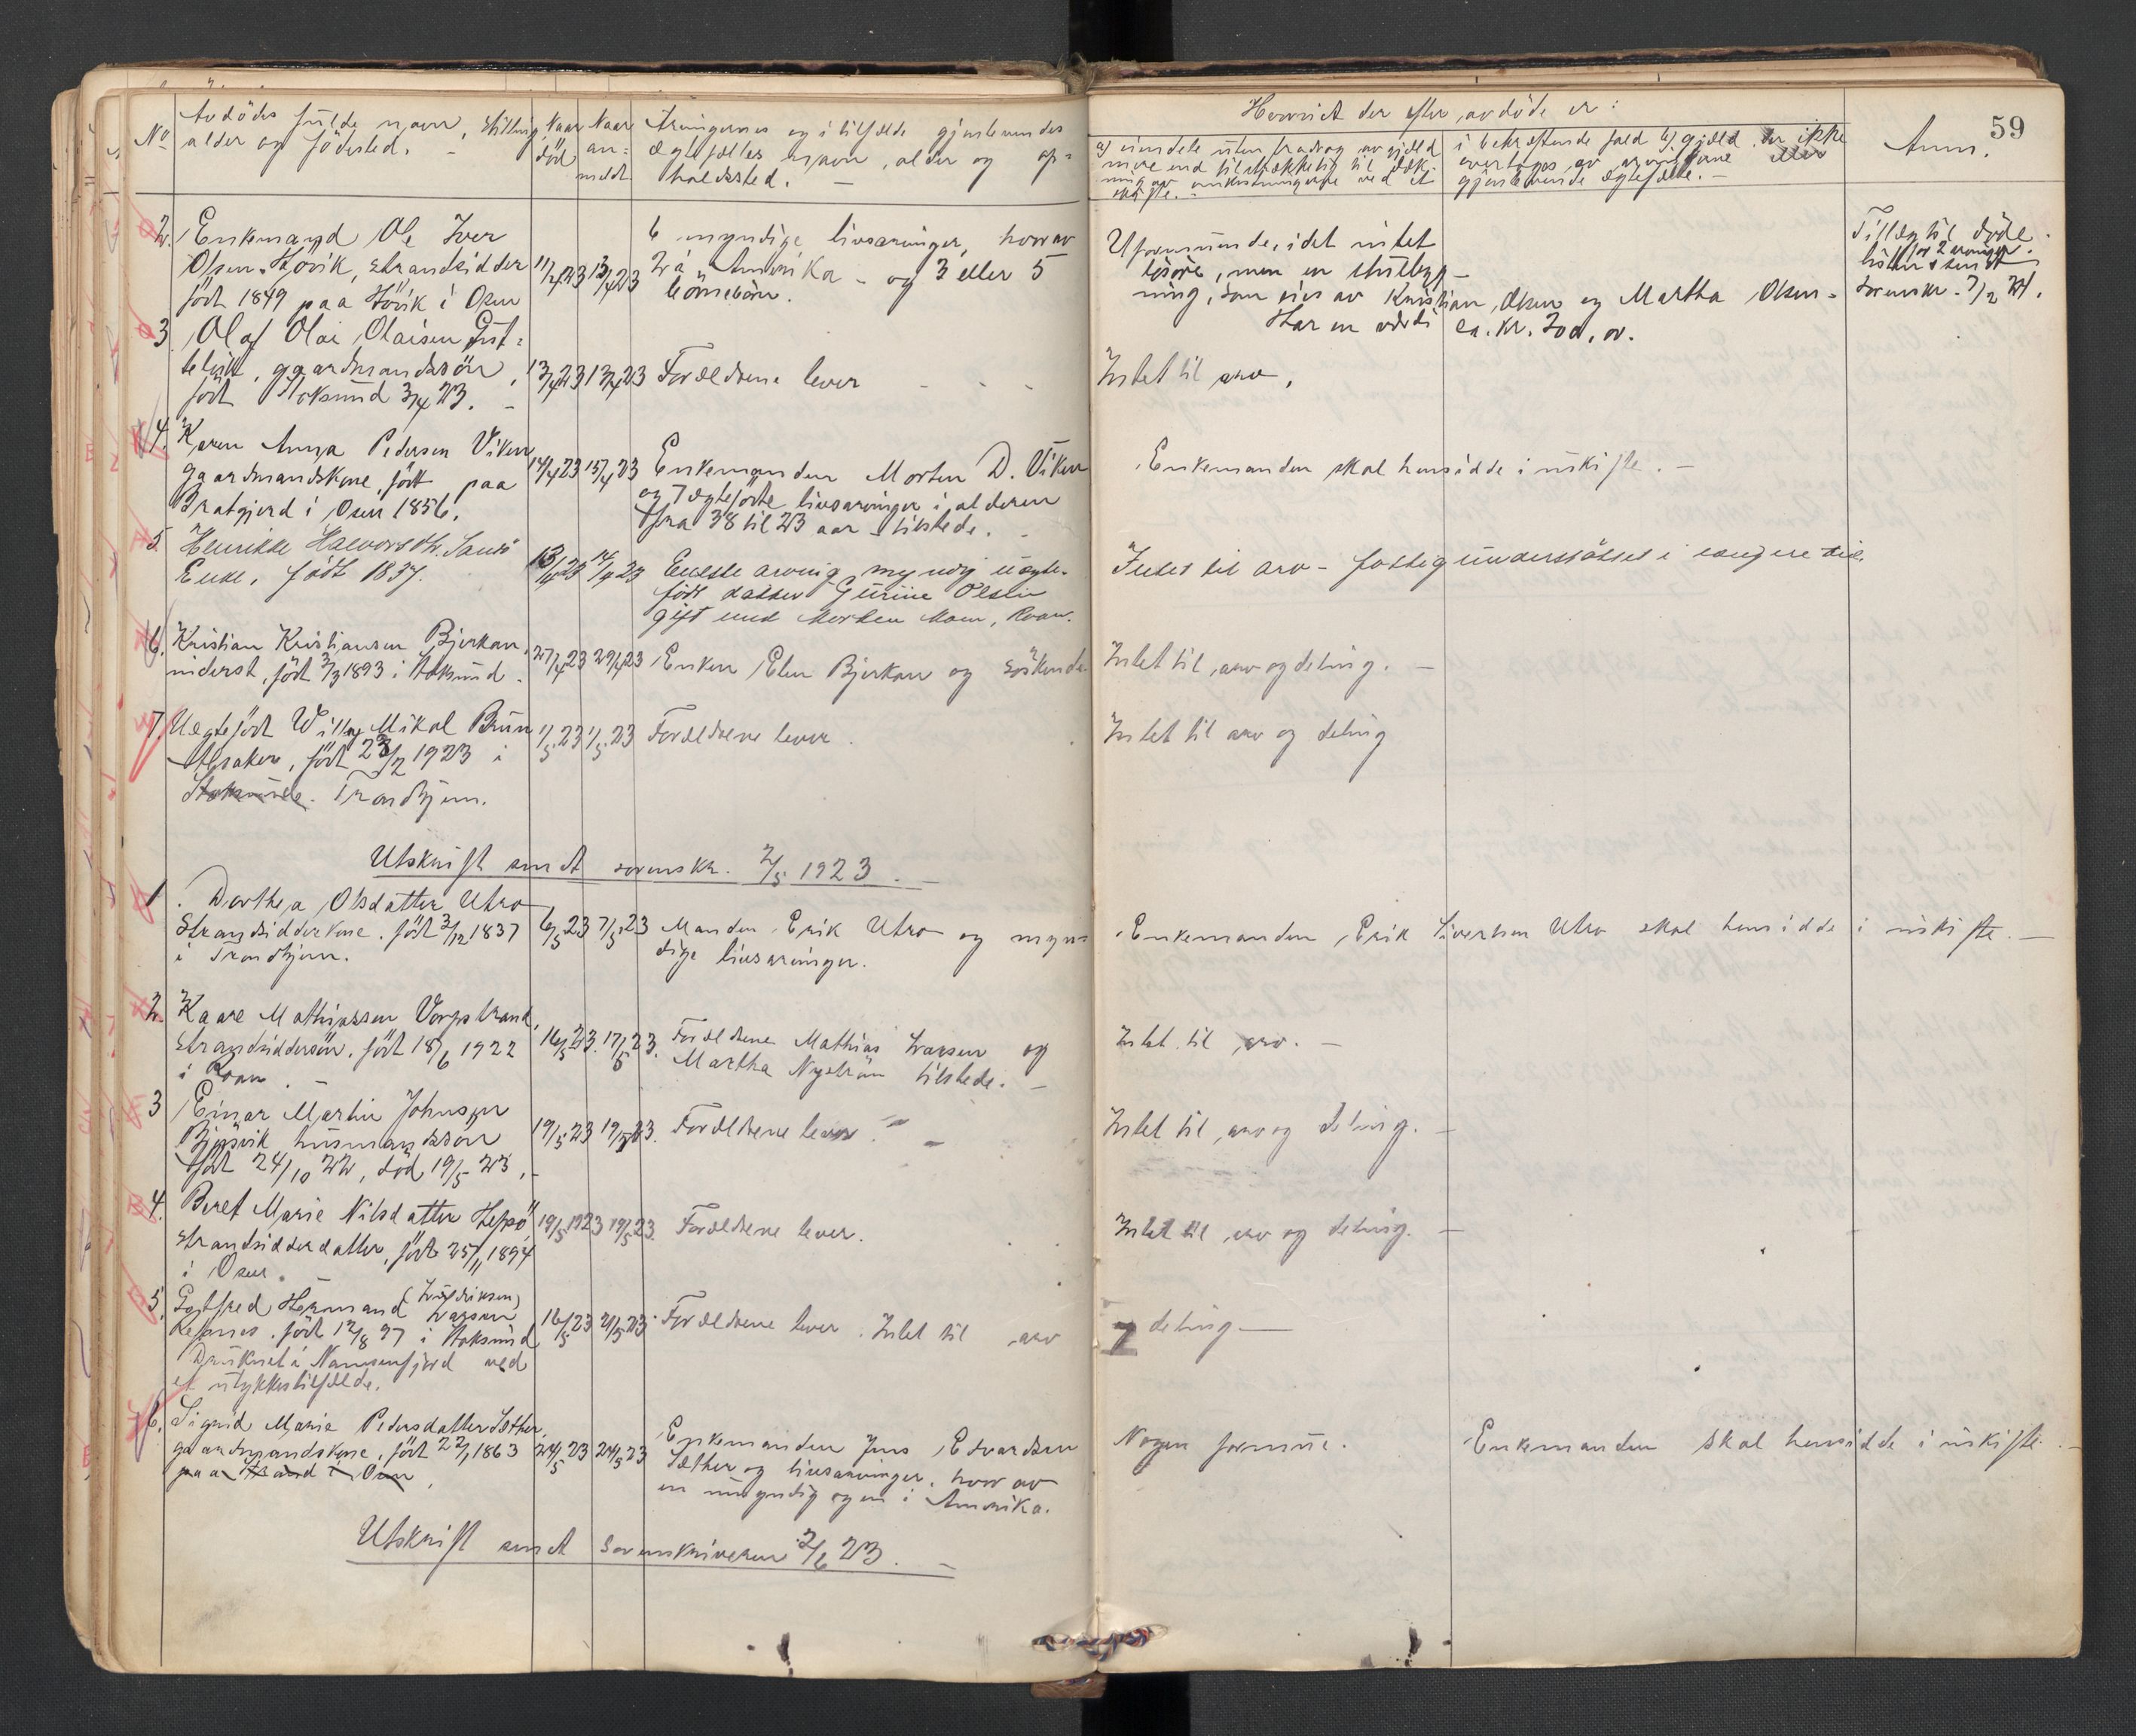 59
No
Avdödes fulde navn, stilling,
alder og födested. -
Naar
död
Naar
an=
meldt
Arvingernes og i tilfælde gjenlevendes
ægtefælles navn, alder og op=
holdssted. -
Hvorvidt der efter avdöde er:
a) eiendele uten fradrag av gjæld
mere end tilstrækkelig til dæk-
ning av omkostningerne ved et
skifte. -
i bekræftende fald b) gjæld der ikke
overtages av arvingerne eller
gjenlevende ægtefælle. -
Anm.
2. Enkemand Ole Iver
Olsen Hövik, strandsidder
födt 1849 paa Hövik i Osen
11/4 23 13/4 23
6 myndige livsarvinger, hvorav
2 i Amerika - og 3 eller 5
börnebörn.
Uformuende, idet intet
lösöre, men en stuebyg-
ning, som eies av Kristian Olsen og Martha Olsen -
Har en værdi ca. kr. 200,00.
Tillæg til döde
for 2 arvinger
sendt
sorenskr. 7/2 24.
3 Olaf Olai Olaisen
gaardmandssön,
födt Stoksund 3/4 23. -
13/4 23 13/4 23 Forældrene lever - - -
Intet til arv.
4. Karen Anna Pedersen Viken
gaardmandskone, födt paa
Bratgjerd i Osen 1856.
14/4 23 15/4 23 Enkemanden Morten D. Viken
og 7 ægtefödte livsarvinger i alderen
fra 38 til 23 aar - tilstede. -
Enkemanden skal hensidde i uskifte. -
5 Henrikke Halvorsdtr. Sandö
Enke, födt 1837.
13/4 23 14/4 23 Eneste arving myndig uægte-
födt datter Gurine Olsen
gift med Morten Moen, Roan.
Intet til arv - fattigunderstöttet i længere tid.
6. Kristian Kristiansen Bjerkan,
inderst, födt 2/3 1893 i Stoksund -
27/4 23 29/4 23 Enken Elen Bjerkan og söskende
Intet til arv og deling. -
7. Uægtefödt Willy Mikal Bruun
Alsaker, födt 23/2 1923 i
Stoksund. Trondhjem.
1/5 23 1/5 23 Forældrene lever.
Intet til arv og deling
Utskrift sendt sorenskr. 2/5 1923. -
1. Dorthea Olsdatter Utro
Strandsidderkone. födt 3/12 1837
i Trondhjem.
6/5 23 7/5 23 Manden Erik Utro og myn=
dige livsarvinger.
Enkemanden Erik Siversen Utro skal hensidde i uskifte. -
2. Kaare Mathiassen Vorpstrand,
strandsiddersön. födt 18/6 1922
i Roan. -
16/5 23. 17/5 23. Forældrene Mathias Larsen og
Martha Nyström tilstede. -
Intet til arv. -
3 Einar Martin Johnsen
Bjørsvik, husmandssön
födt 24/10 22, död 19/5 23. -
19/5 23 19/5 23. Forældrene lever. -
Intet til arv og deling. -
4. Beret Marie Nilsdatter Hepsö
strandsidderdatter, födt 25/11 1894
i Osen.
19/5 1923 19/5 23. Forældrene lever.
Intet til arv og deling. -
5. Gotfred Hermand Larsen
(Ludviksen)
Refsnes. födt 12/8 97 i Stoksund
Druknet i Namsenfjord ved
et ulykkestilfælde.
16/5 23 21/5 23. Forældrene lever. Intet til arv
deling -
6. Sigrid Marie Pedersdatter Sæther,
gaardmandskone, födt 22/1 1863
paa Strand i Osen.
24/5 23 24/5 23 Enkemanden Jens Edvardsen
Sæther og livsarvinger, hvorav
en umyndig og en i Amerika.
Nogen formue.
Enkemanden skal hensidde i uskifte. -
Utskrift sendt Sorenskriveren 2/6 23. -